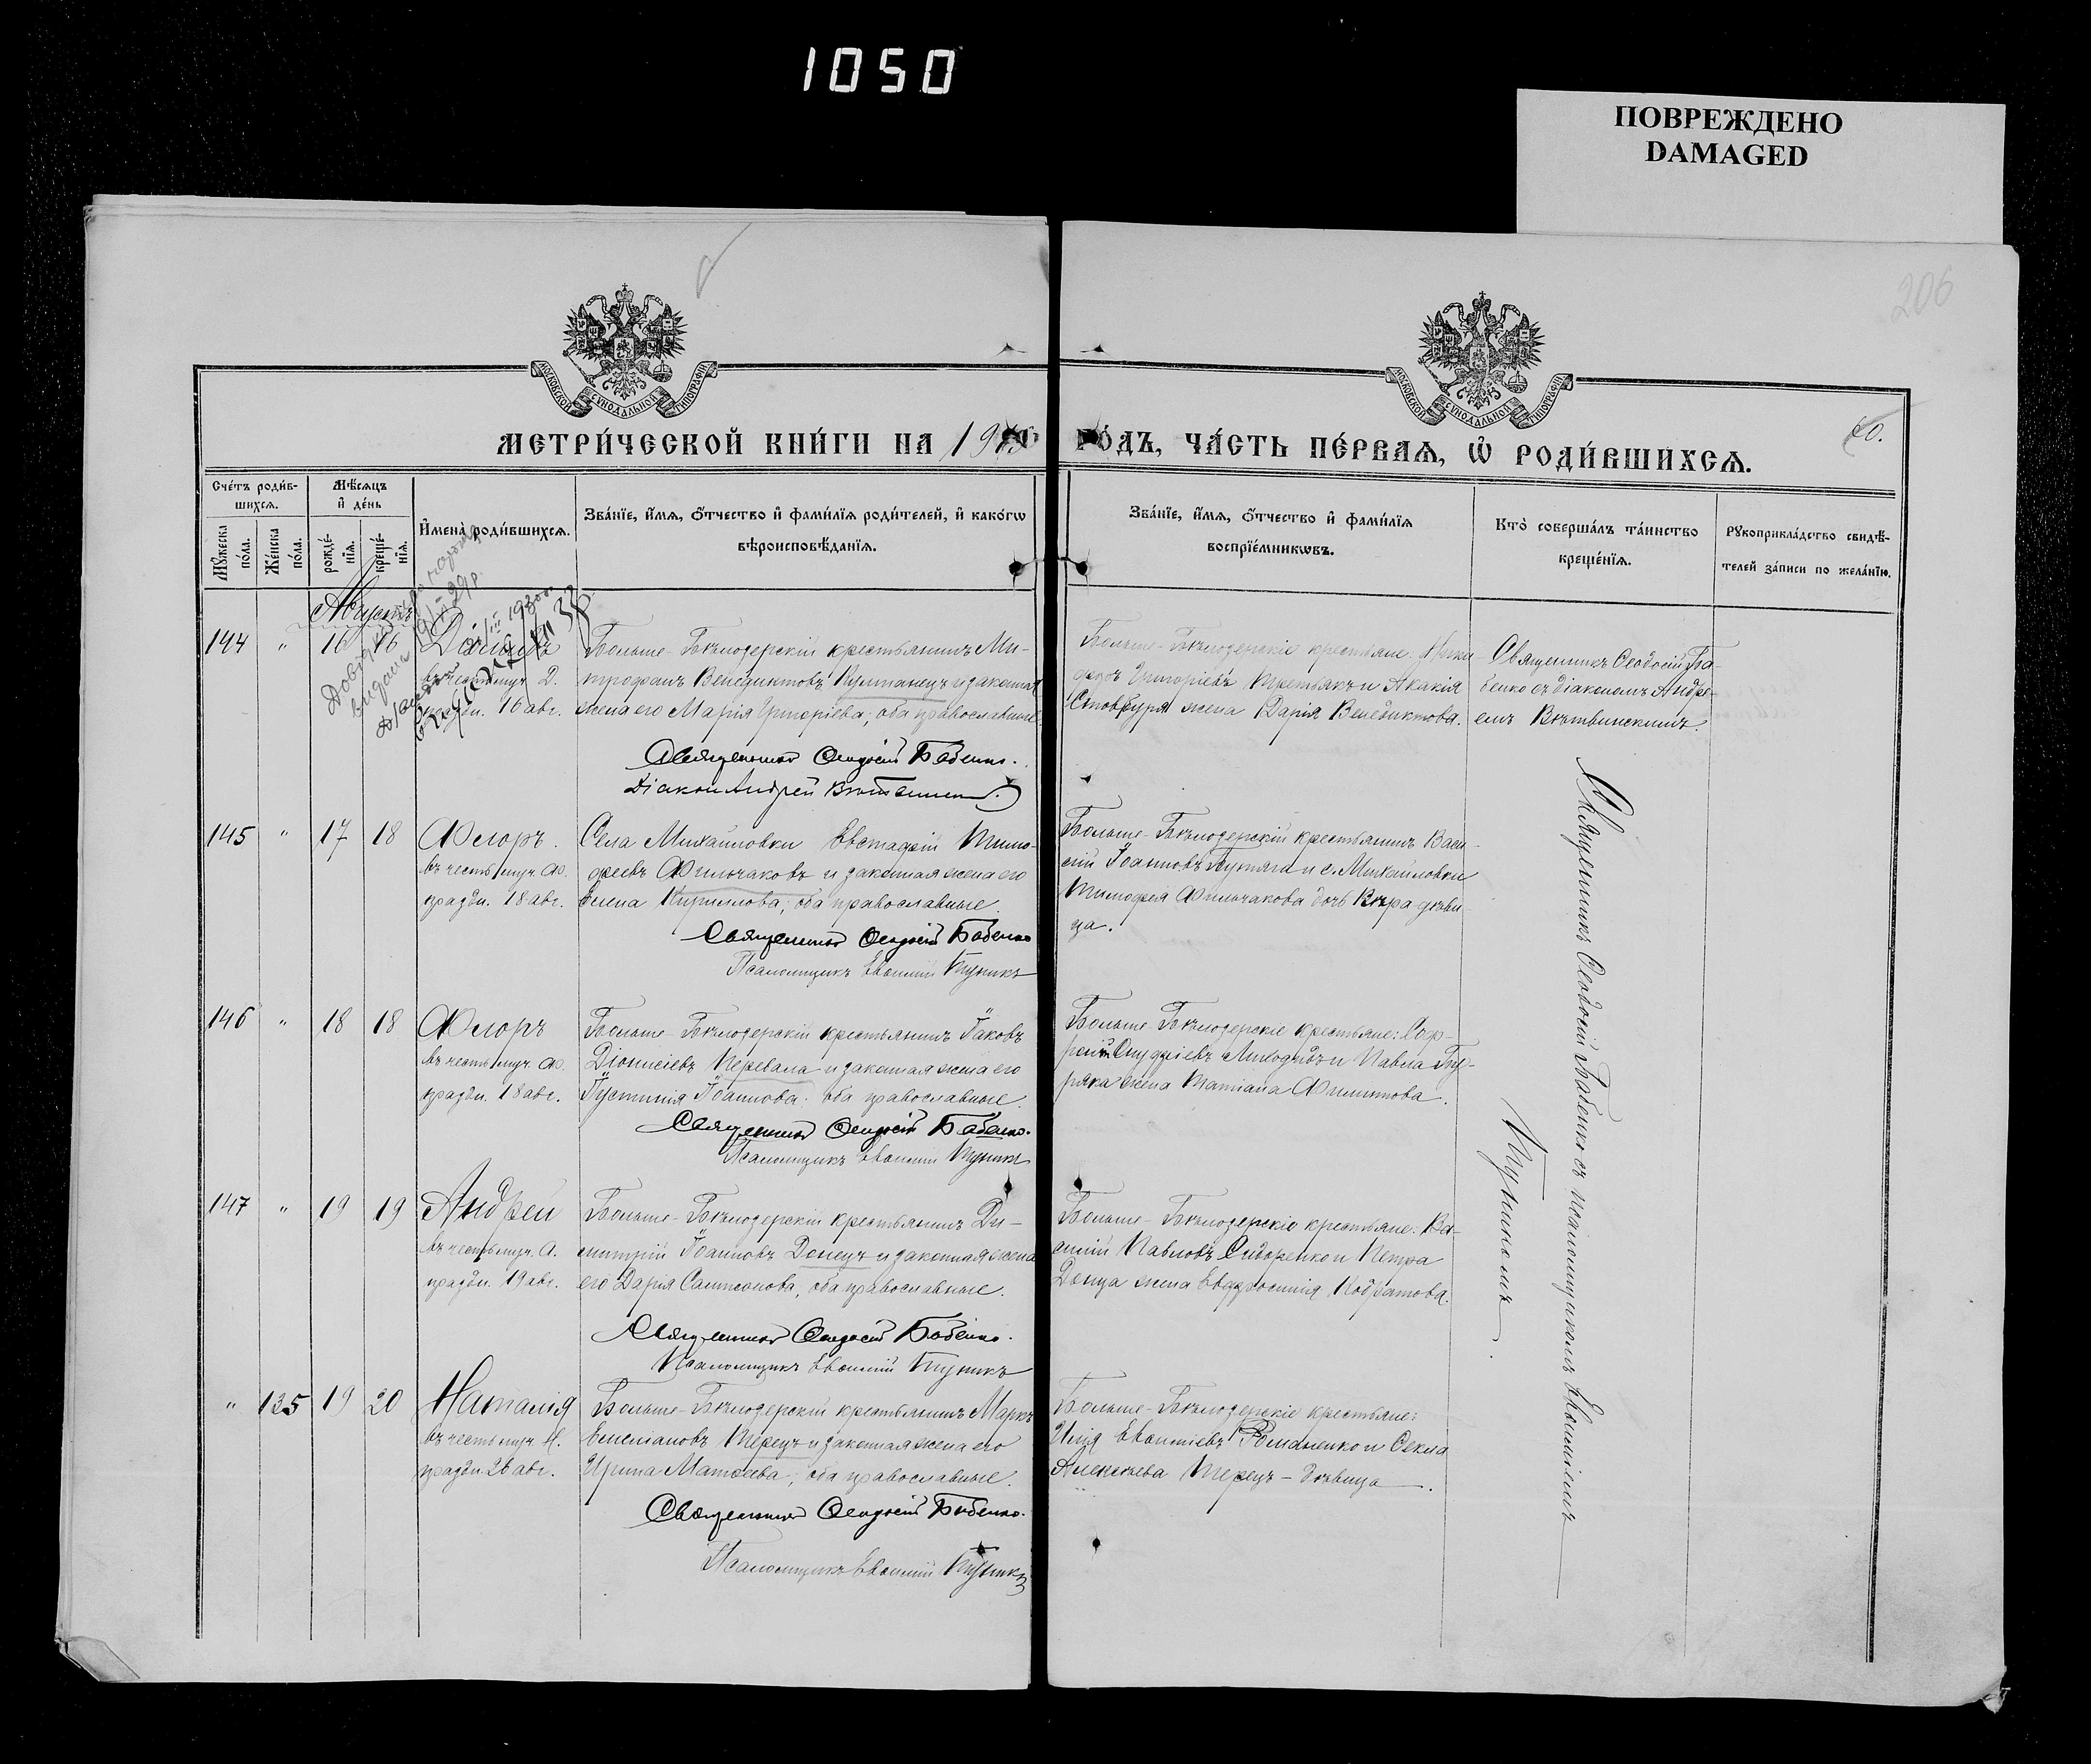 1050
ПОВРЕЖДЕНО
DAMAGED
206
МОСКОВСКОЙ СѴНОДАЛЬНОЙ ТИПОГРАФІИ
МОСКОВСКОЙ СѴНОДАЛЬНОЙ ТИПОГРАФІИ
МЕТРИ́ЧЕСКОЙ КНИ́ГИ НА
ГО́ДЪ, ЧА́СТЬ ПЕ́РВАѦ, Ѡ҆ РОДИ́ВШИХСѦ.
Сче́тъ роди́в-
шихсѧ.
Мѣ́сѧцъ
и҆ де́нь
Мꙋ́жеска по́ла.
Же́нска по́ла.
рожде́-
нїѧ.
креще́-
нїѧ.
И҆мена̀ роди́вшихсѧ.
Зва́нїе, и҆́мѧ, ѻ҆́тчество и҆ фами́лїѧ роди́телей, и҆ како́гѡ
вѣроисповѣ́данїѧ.
Зва́нїе, и҆́мѧ, ѻ҆́тчество и҆ фами́лїѧ
воспрїе́мникѡвъ.
Кто̀ соверша́лъ та́инство
креще́нїѧ.
Рꙋкоприкла́дство свидѣ́-
телей за́писи по жела́нїю.
Августъ
144 " 16 16
въ честь муч. Д.
праздн. 16 авг.
Больше-Бѣлозерскій крестьянинъ Ми-
трофанъ Венедиктовъ Культанецъ и законная
жена его Марія Григоріева; оба православные
Священникъ Ѳеодосій Бабенко.
Діаконъ Андрей Вѣтвинскій.
Больше-Бѣлозерскіе крестьяне: Ники-
форъ Григоріевъ Третьякъ и Акакія
Стовбуря жена Дарія Венедиктова.
Священникъ Ѳеодосій Ба-
бенко съ діакономъ Андре-
емъ Вѣтвинскимъ.
145 " 17 18 Флоръ.
въ честь муч. Ф.
праздн. 18 авг.
Села Михайловки Евстафій Тимо-
феевъ Фильчаковъ и законная жена его
Елена Кириллова; оба православные.
Священникъ Ѳеодосій Бабенко
Псаломщикъ Евѳимій Тупикъ
Больше-Бѣлозерскій крестьянинъ Васи-
лій Іоанновъ и с. Михайловки
Тимофея Фильчакова дочь Вѣра дѣви-
ца.
146 " 18 18 Флоръ
въ честь муч. Ф.
праздн. 18 авг.
Больше-Бѣлозерскій крестьянинъ Іаковъ
Діонисіевъ Перевала и законная жена его
Іустинія Іоаннова; оба православные.
Священникъ Ѳеодосій Бабенко.
Псаломщикъ Евѳимій Тупикъ
Больше-Бѣлозерскіе крестьяне: Соф-
роній Онуфріевъ и Павла Бу-
ряка жена Татіана Филиппова.
147 " 19 19 Андрей
въ честь муч. А.
праздн. 19 авг.
Больше-Бѣлозерскій крестьянинъ Ди-
митрій Іоанновъ Донецъ и законная жена
его Дарія Сампсонова, оба православные.
Священникъ Ѳеодосій Бабенко.
Псаломщикъ Евѳимій Тупикъ
Больше-Бѣлозерскіе крестьяне: Ва-
силій Павловъ Сидоренко и Петра
Донца жена Евфросинія Кодратова.
" 125 19 20 Наталія
въ честь муч. Н.
праздн. 26 авг.
Больше-Бѣлозерскій крестьянинъ Маркъ
Емеліановъ Терецъ и законная жена его
Ирина Матѳеева; оба православные.
Священникъ Ѳеодосій Бабенко.
Псаломщикъ Евѳимій Тупикъ
Больше-Бѣлозерскіе крестьяне:
Илія Евѳиміевъ Романенко и Ѳекла
Алексѣева Терецъ – дѣвица.
Священникъ Ѳеодосій Бабенко съ псаломщикомъ Евѳиміемъ
Тупикомъ.